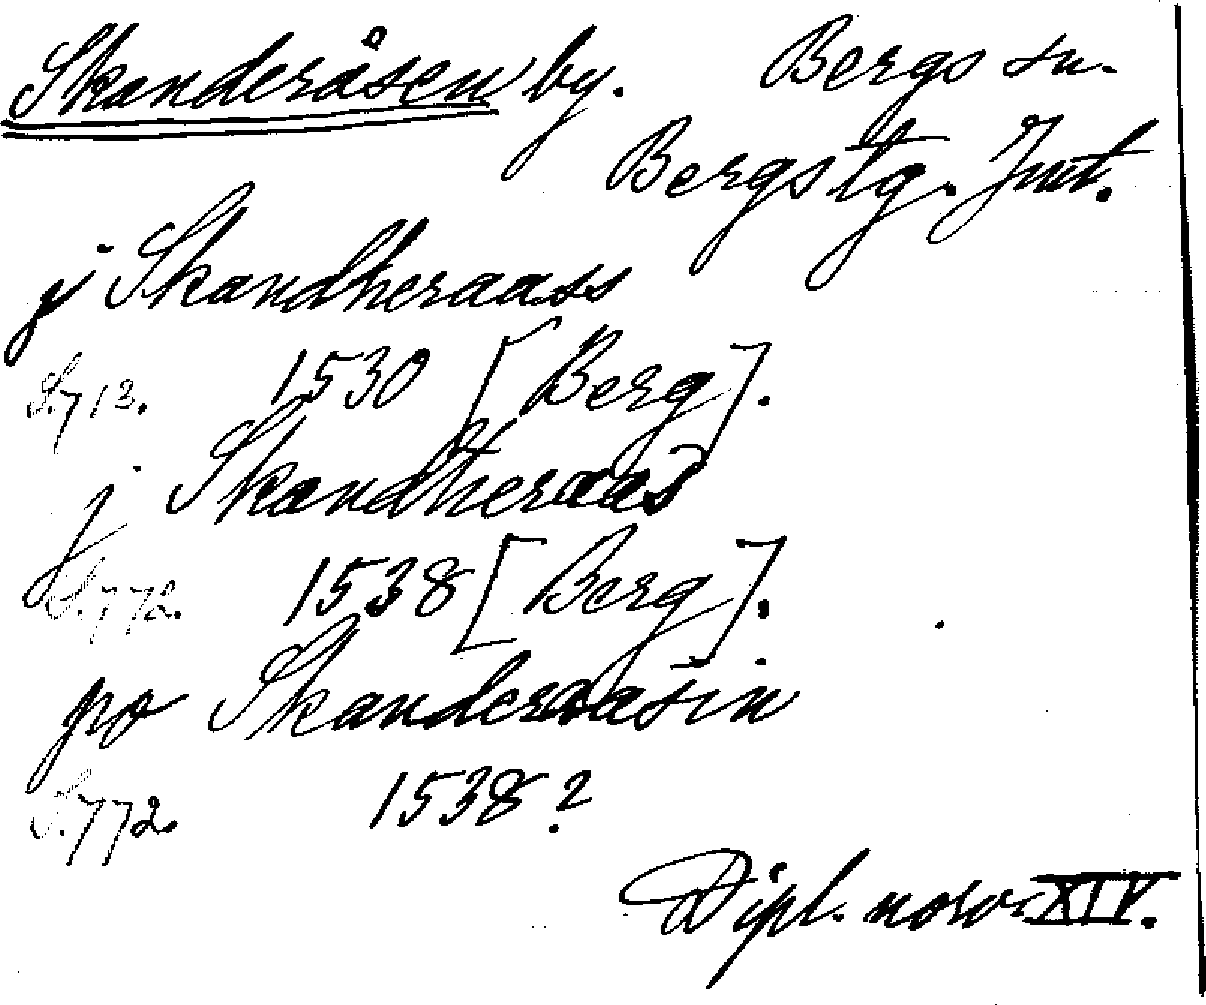 Skanderåsen by. Bergs sn.
Bergs tg. Jmt.
j Skandheraass
S. 713. 1530 [Berg].
j Skandheraas
S. 772. 1538 [Berg].
po Skanderaasin
S. 772. 1538?
Dipl. norv. XIV.